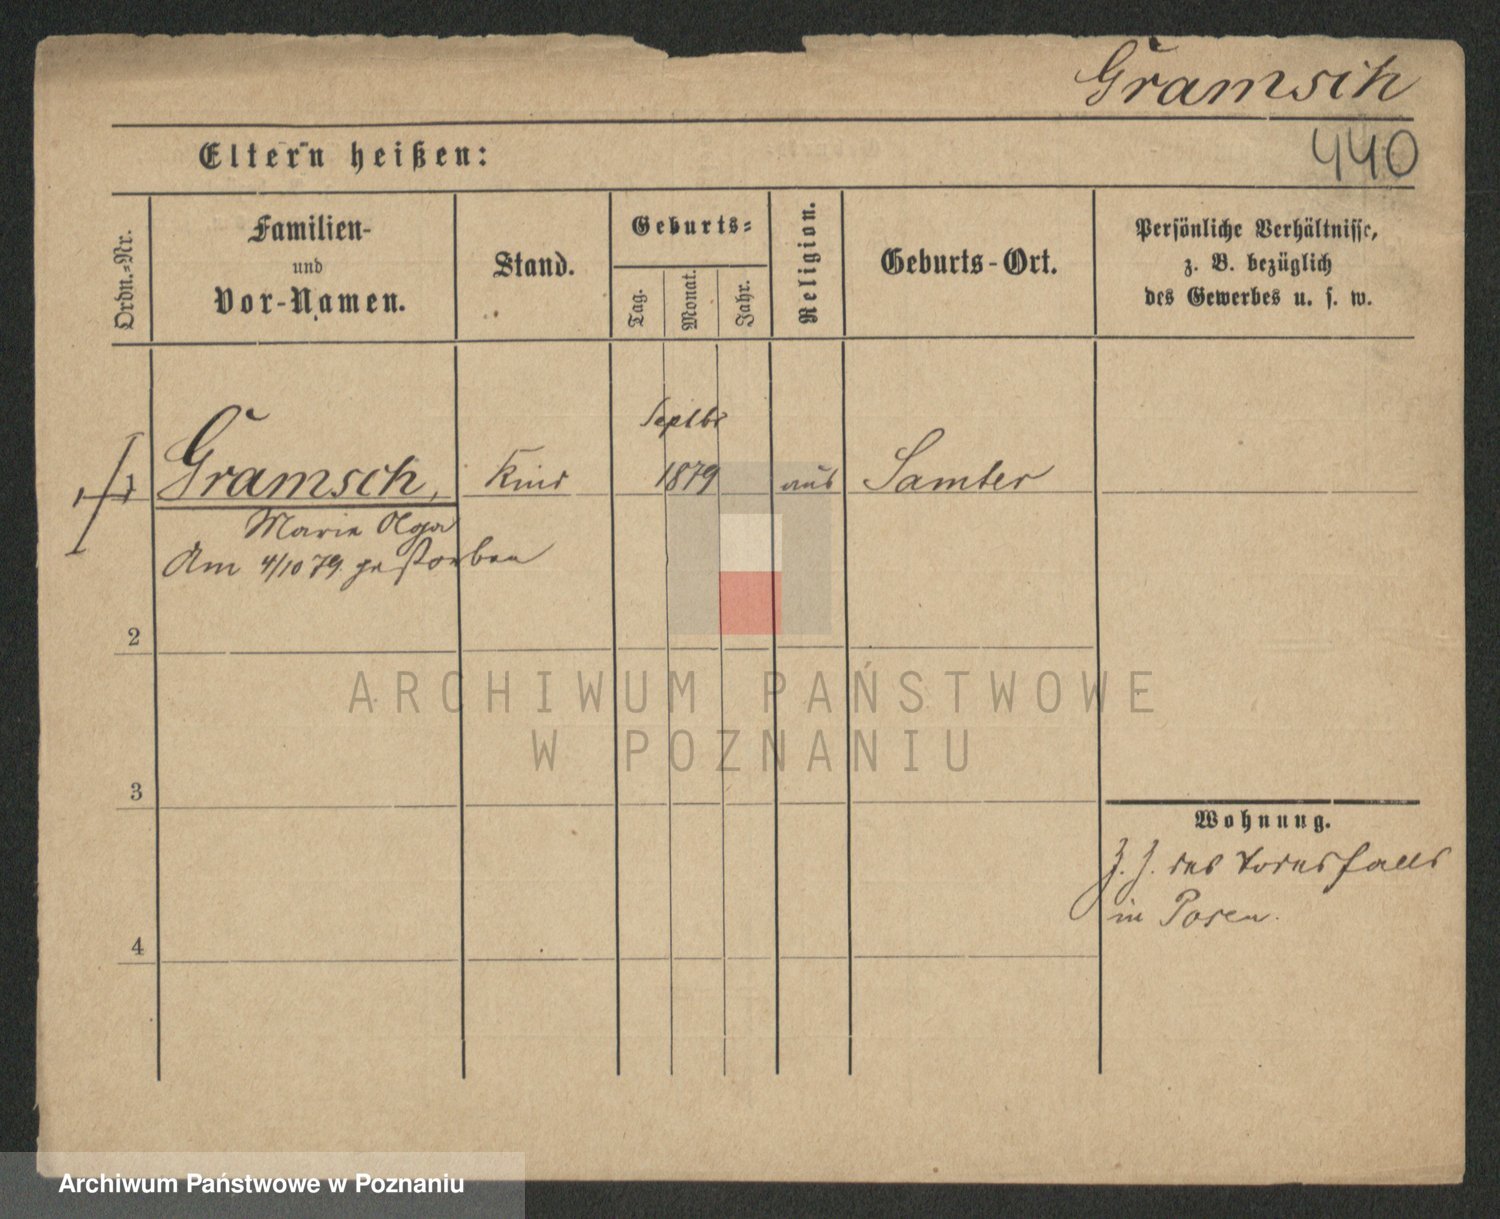 Gramsch
440
Eltern heißen:
Ordn.-Nr.
Familien-
und
Vor-Namen.
Stand.
Geburts-
Tag.
Monat.
Jahr.
Religion.
Geburts-Ort.
Persönliche Verhältnisse,
z. B. bezüglich
des Gewerbes u. s. w.
Septbr
1 Gramsch, Kind 1879 Samter
Marie Olga
Am 4/10 79 gestorben
2
ARCHIWUM PAŃSTWOWE
W POZNANIU
3
Wohnung.
z. Z. des Todesfalls
in Posen.
4
Archiwum Państwowe w Poznaniu